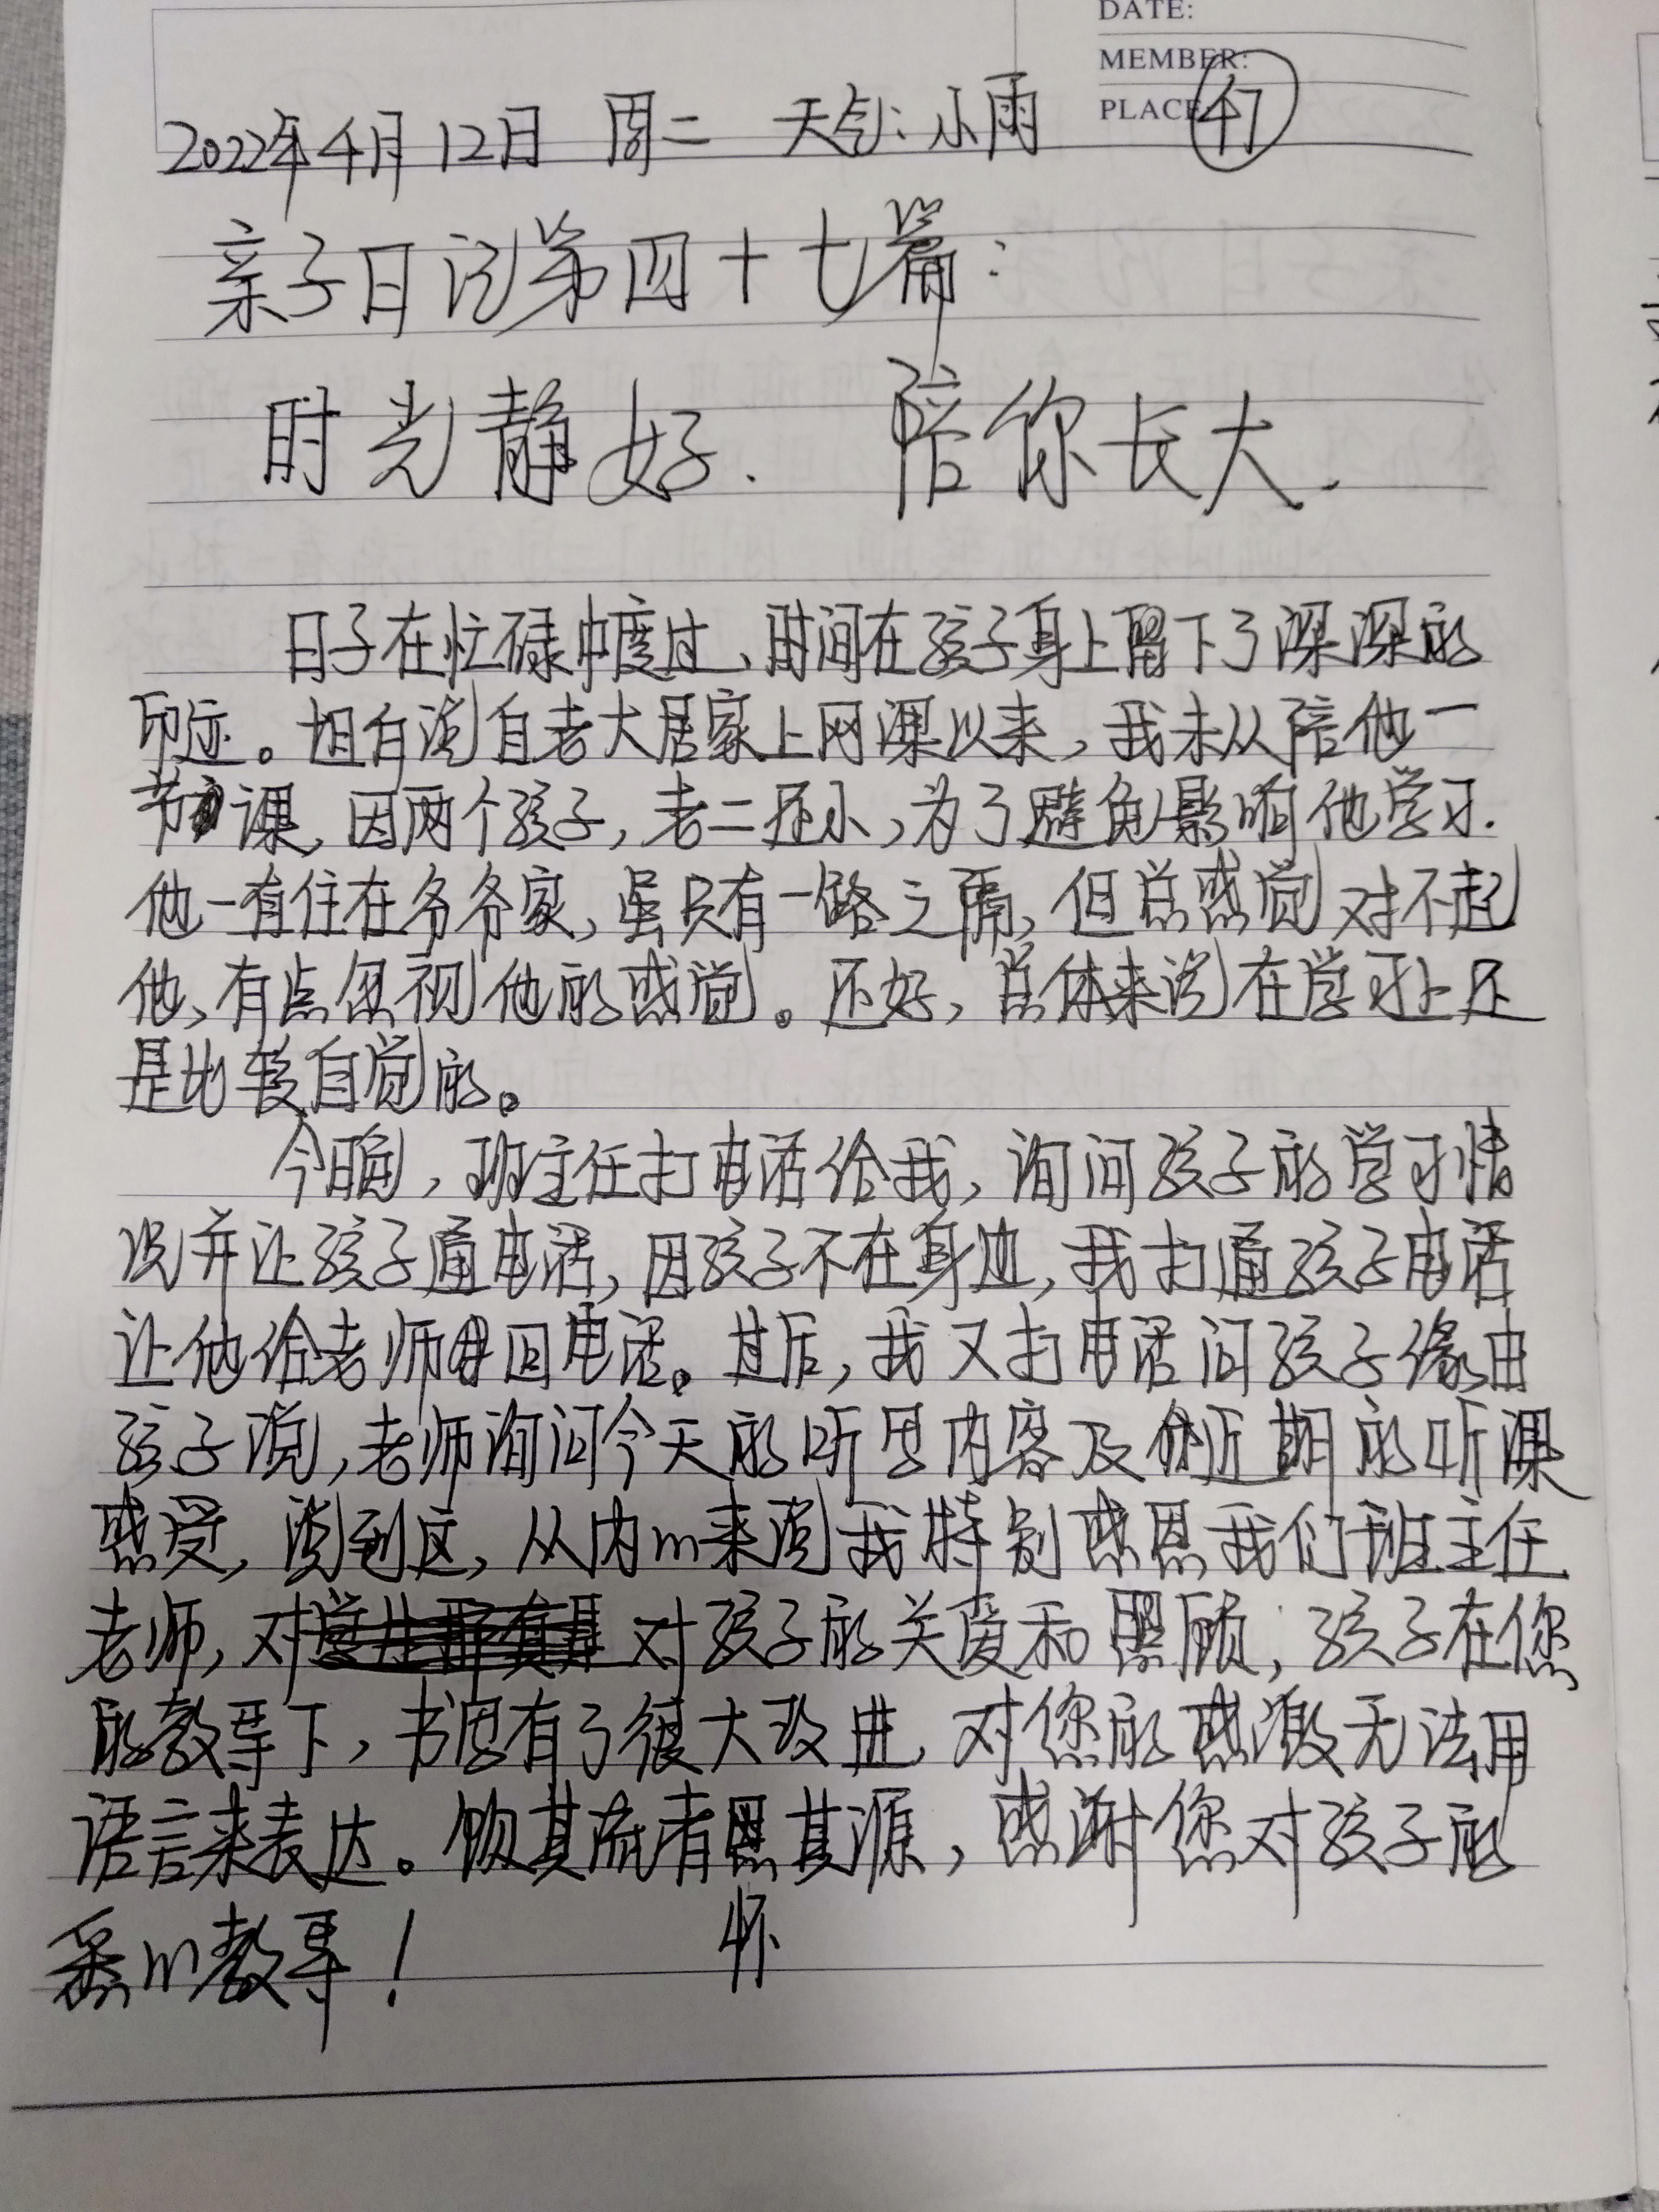 DATE:
MEMBER:
PLACE:
47
2022年4月12日 周二 天气:小雨
亲子日记第四十七篇:
时光静好. 陪你长大.
日子在忙碌中度过、时间在孩子身上留下了深深的
印迹。坦白说自老大居家上网课以来,我未从陪他一
节课,因两个孩子,老二还小,为了避免影响他学习.
他一直住在爷爷家,虽只有一路之隔,但总感觉对不起
他、有点忽视他的感觉。还好,总体来说在学习上还
是比较自觉的。
今晚,班主任打电话给我,询问孩子的学习情
况并让孩子通电话,因孩子不在身边,我打通孩子电话
让他给老师回电话。其后,我又打电话问孩子缘由
孩子说,老师询问今天的听写内容及近期的听课
感受,说到这,从内心来说我特别感恩我们班主任
老师,对对孩子的关爱和照顾;孩子在您
的教导下,书写有了很大改进,对您的感激无法用
语言来表达。饮其流者怀其源,感谢您对孩子的
悉心教导!